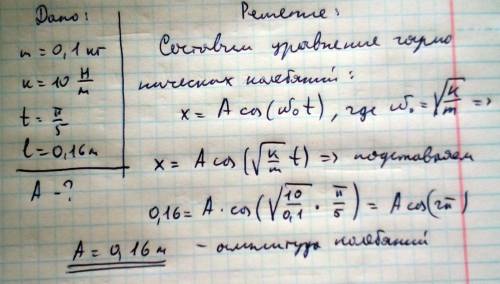 Дано:
m = 0,1 кг
k = 10 Н/м
t = π/5
l = 0,16 м
A - ?
Решение:
Составим уравнение гармо
нических колебаний:
x = A cos(ω₀t), где ω₀ = √(k/m) =>
x = A cos(√(k/m) t) => подставляем
0,16 = A · cos(√(10/0,1) · π/5) = A cos(2π)
A = 0,16 м - амплитуда колебаний